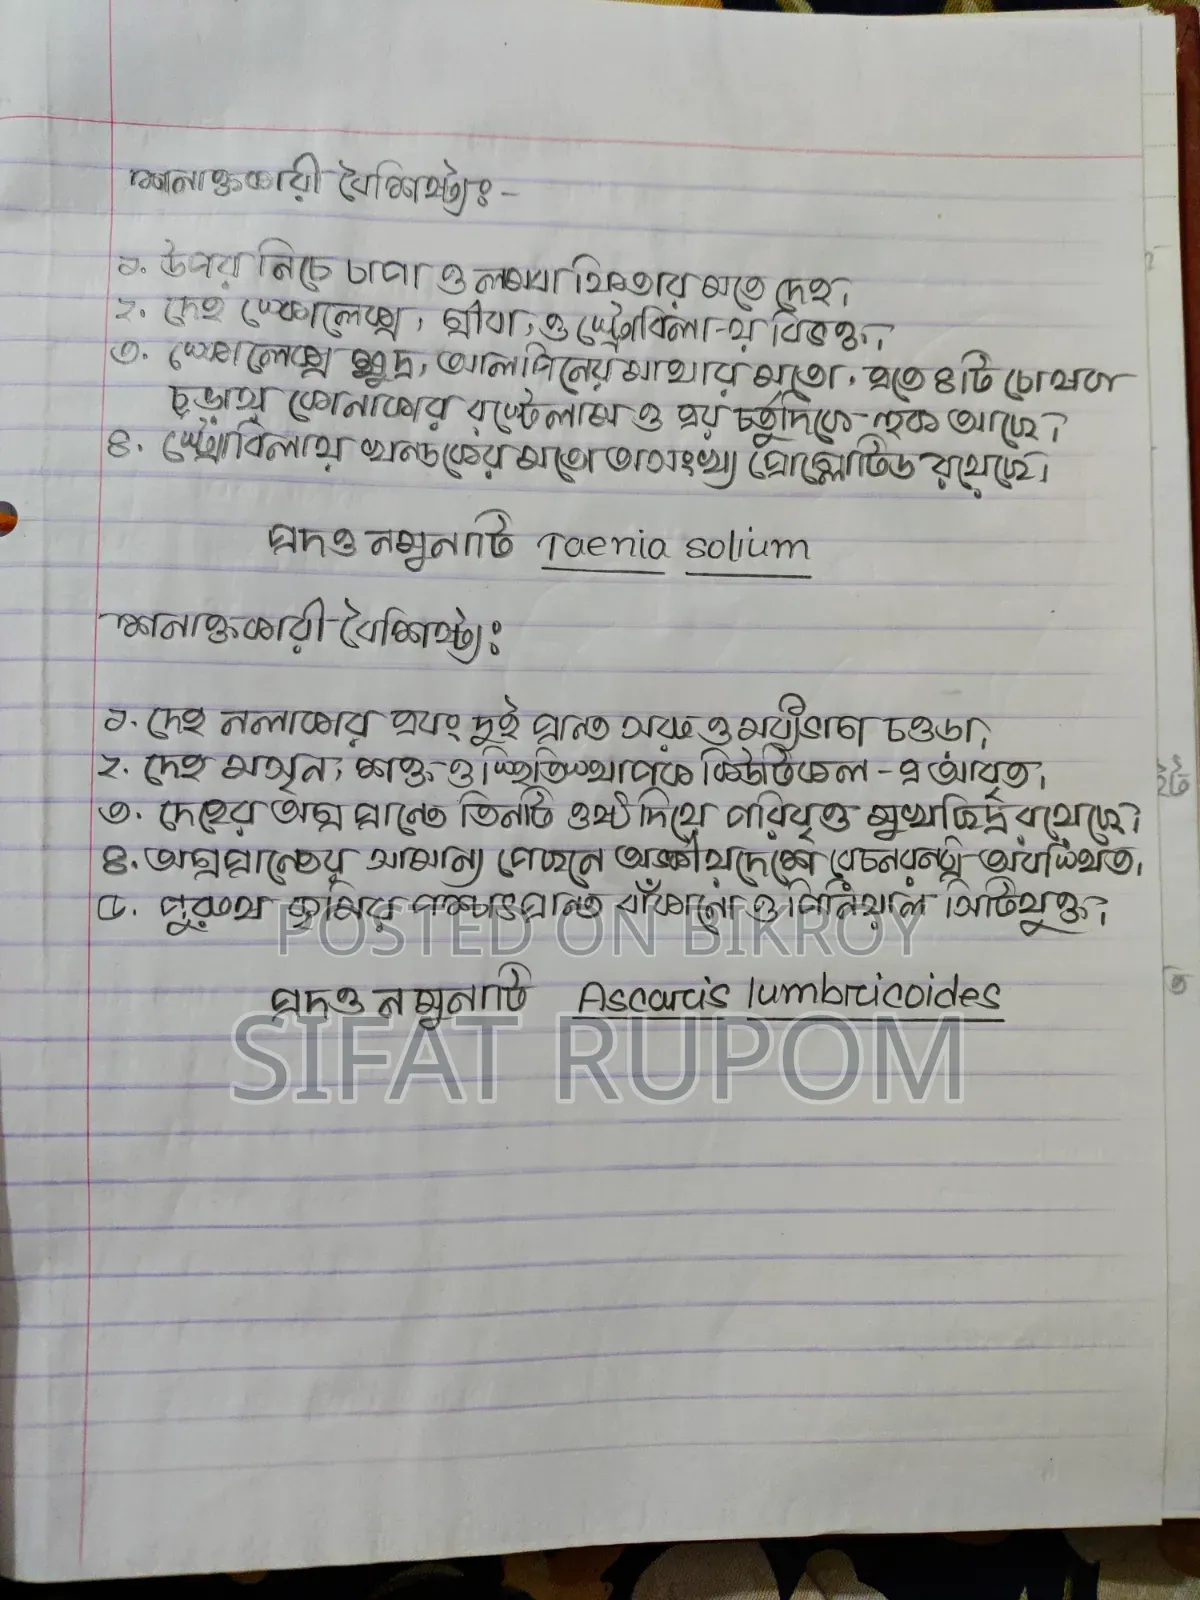 শনাক্তকারী বৈশিষ্ট্যঃ-
১. উপর নিচে চাপা ও লম্বা ফিতার মতে দেহ।
২. দেহ স্কোলেক্স, গ্রীবা, ও স্ট্রোবিলা-য় বিভক্ত।
৩. স্কোলেক্স ক্ষুদ্র, আলপিনের মাথার মতো, এতে ৪টি চোষণ
চূড়ায় কোনাকার রস্টেলাম ও এর চর্তুদিকে-হুক আছে।
৪. স্ট্রোবিলায় খন্ডকের মতো অসংখ্য প্রোগ্লোটিড রয়েছে।
প্রদত্ত নমুনাটি Taenia solium
শনাক্তকারী বৈশিষ্ট্যঃ
১. দেহ নলাকার এবং দুই প্রান্ত সরু ও মধ্যভাগ চওড়া।
২. দেহ মসৃন, শক্ত ও স্থিতিস্থাপক কিউটিকল-এ আবৃত।
৩. দেহের অগ্র প্রান্তে তিনটি ওষ্ঠ দিয়ে পরিবৃত্ত মুখছিদ্র রয়েছে।
৪. অগ্রপ্রান্তের সামান্য পেছনে অঙ্কীয়দেশে রেচনরন্ধ্র অবস্থিত।
৫. পুরুষ কৃমির পশ্চাৎপ্রান্ত বাঁকানো ও পিনিয়াল সিটিযুক্ত।
POSTED ON BIKROY
প্রদত্ত নমুনাটি Ascaris lumbricoides
SIFAT RUPOM